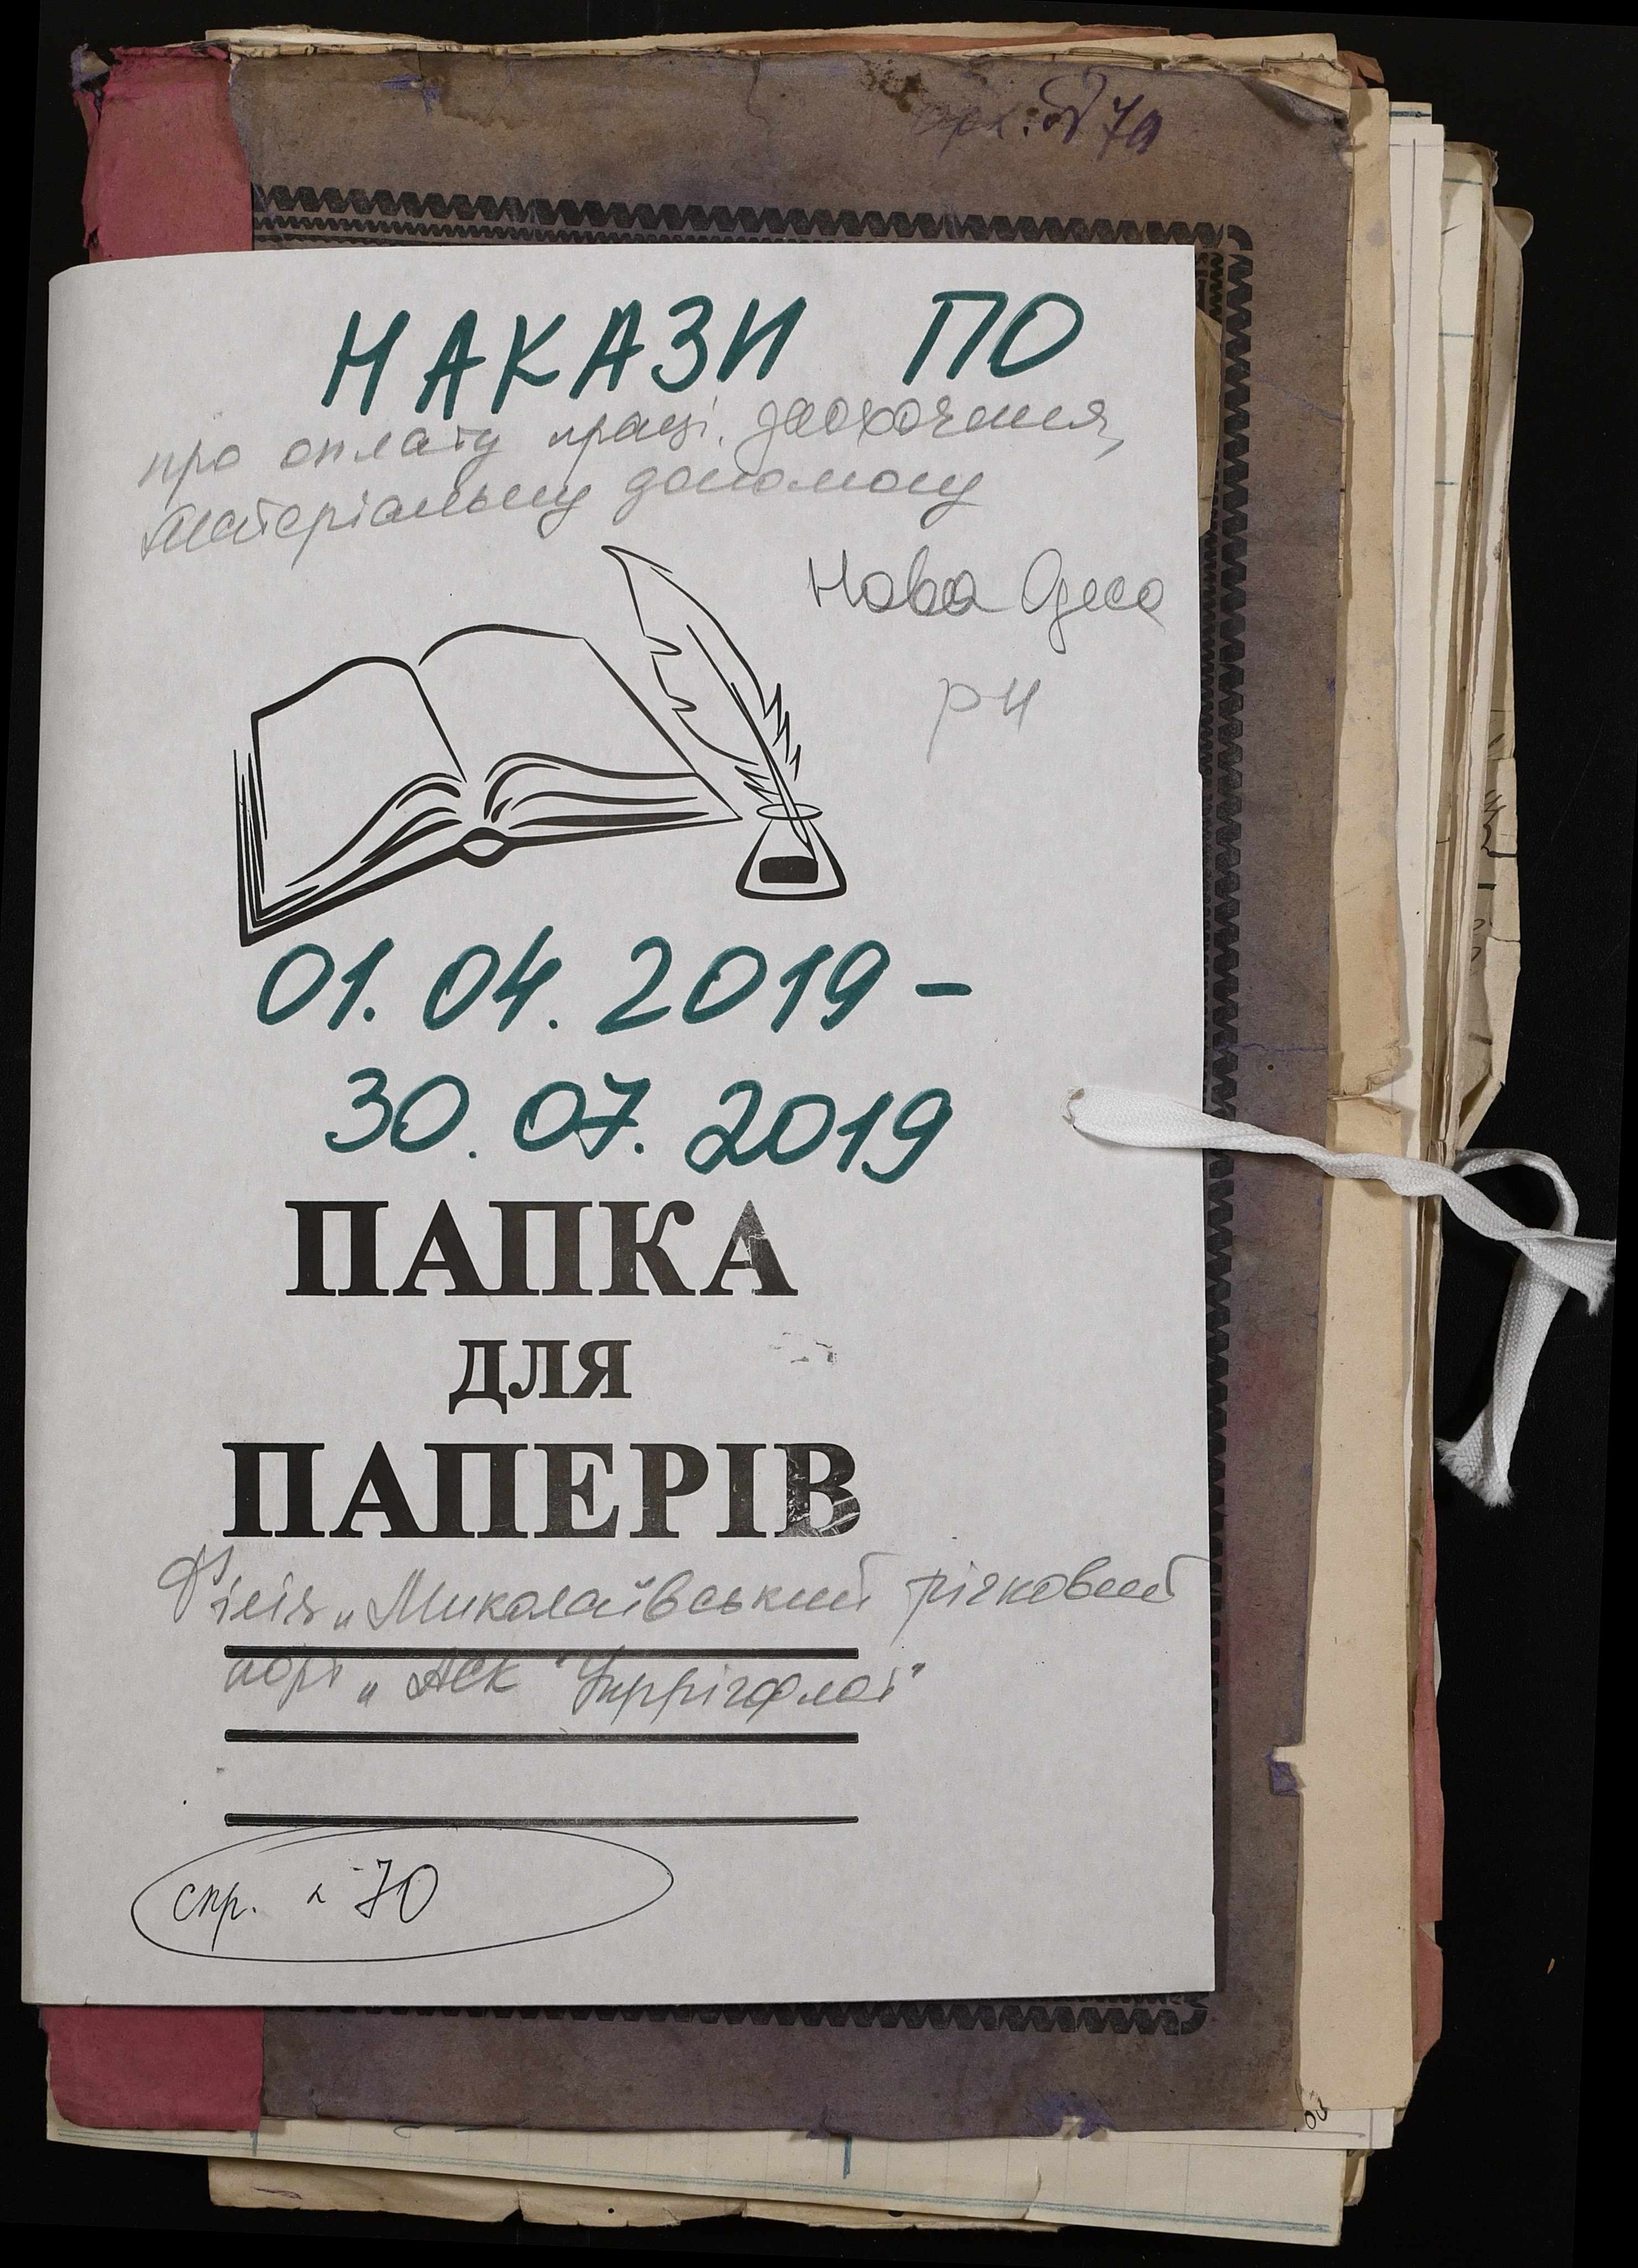 70
НАКАЗИ ПО
про оплату праці, заохочення,
матеріальну допомогу
Нова Одеса
рн
01.04.2019 –
30.07.2019
ПАПКА
ДЛЯ
ПАПЕРІВ
Філія „Миколаївський річковий
порт „ АСК "Укррічфлот"
спр. 70